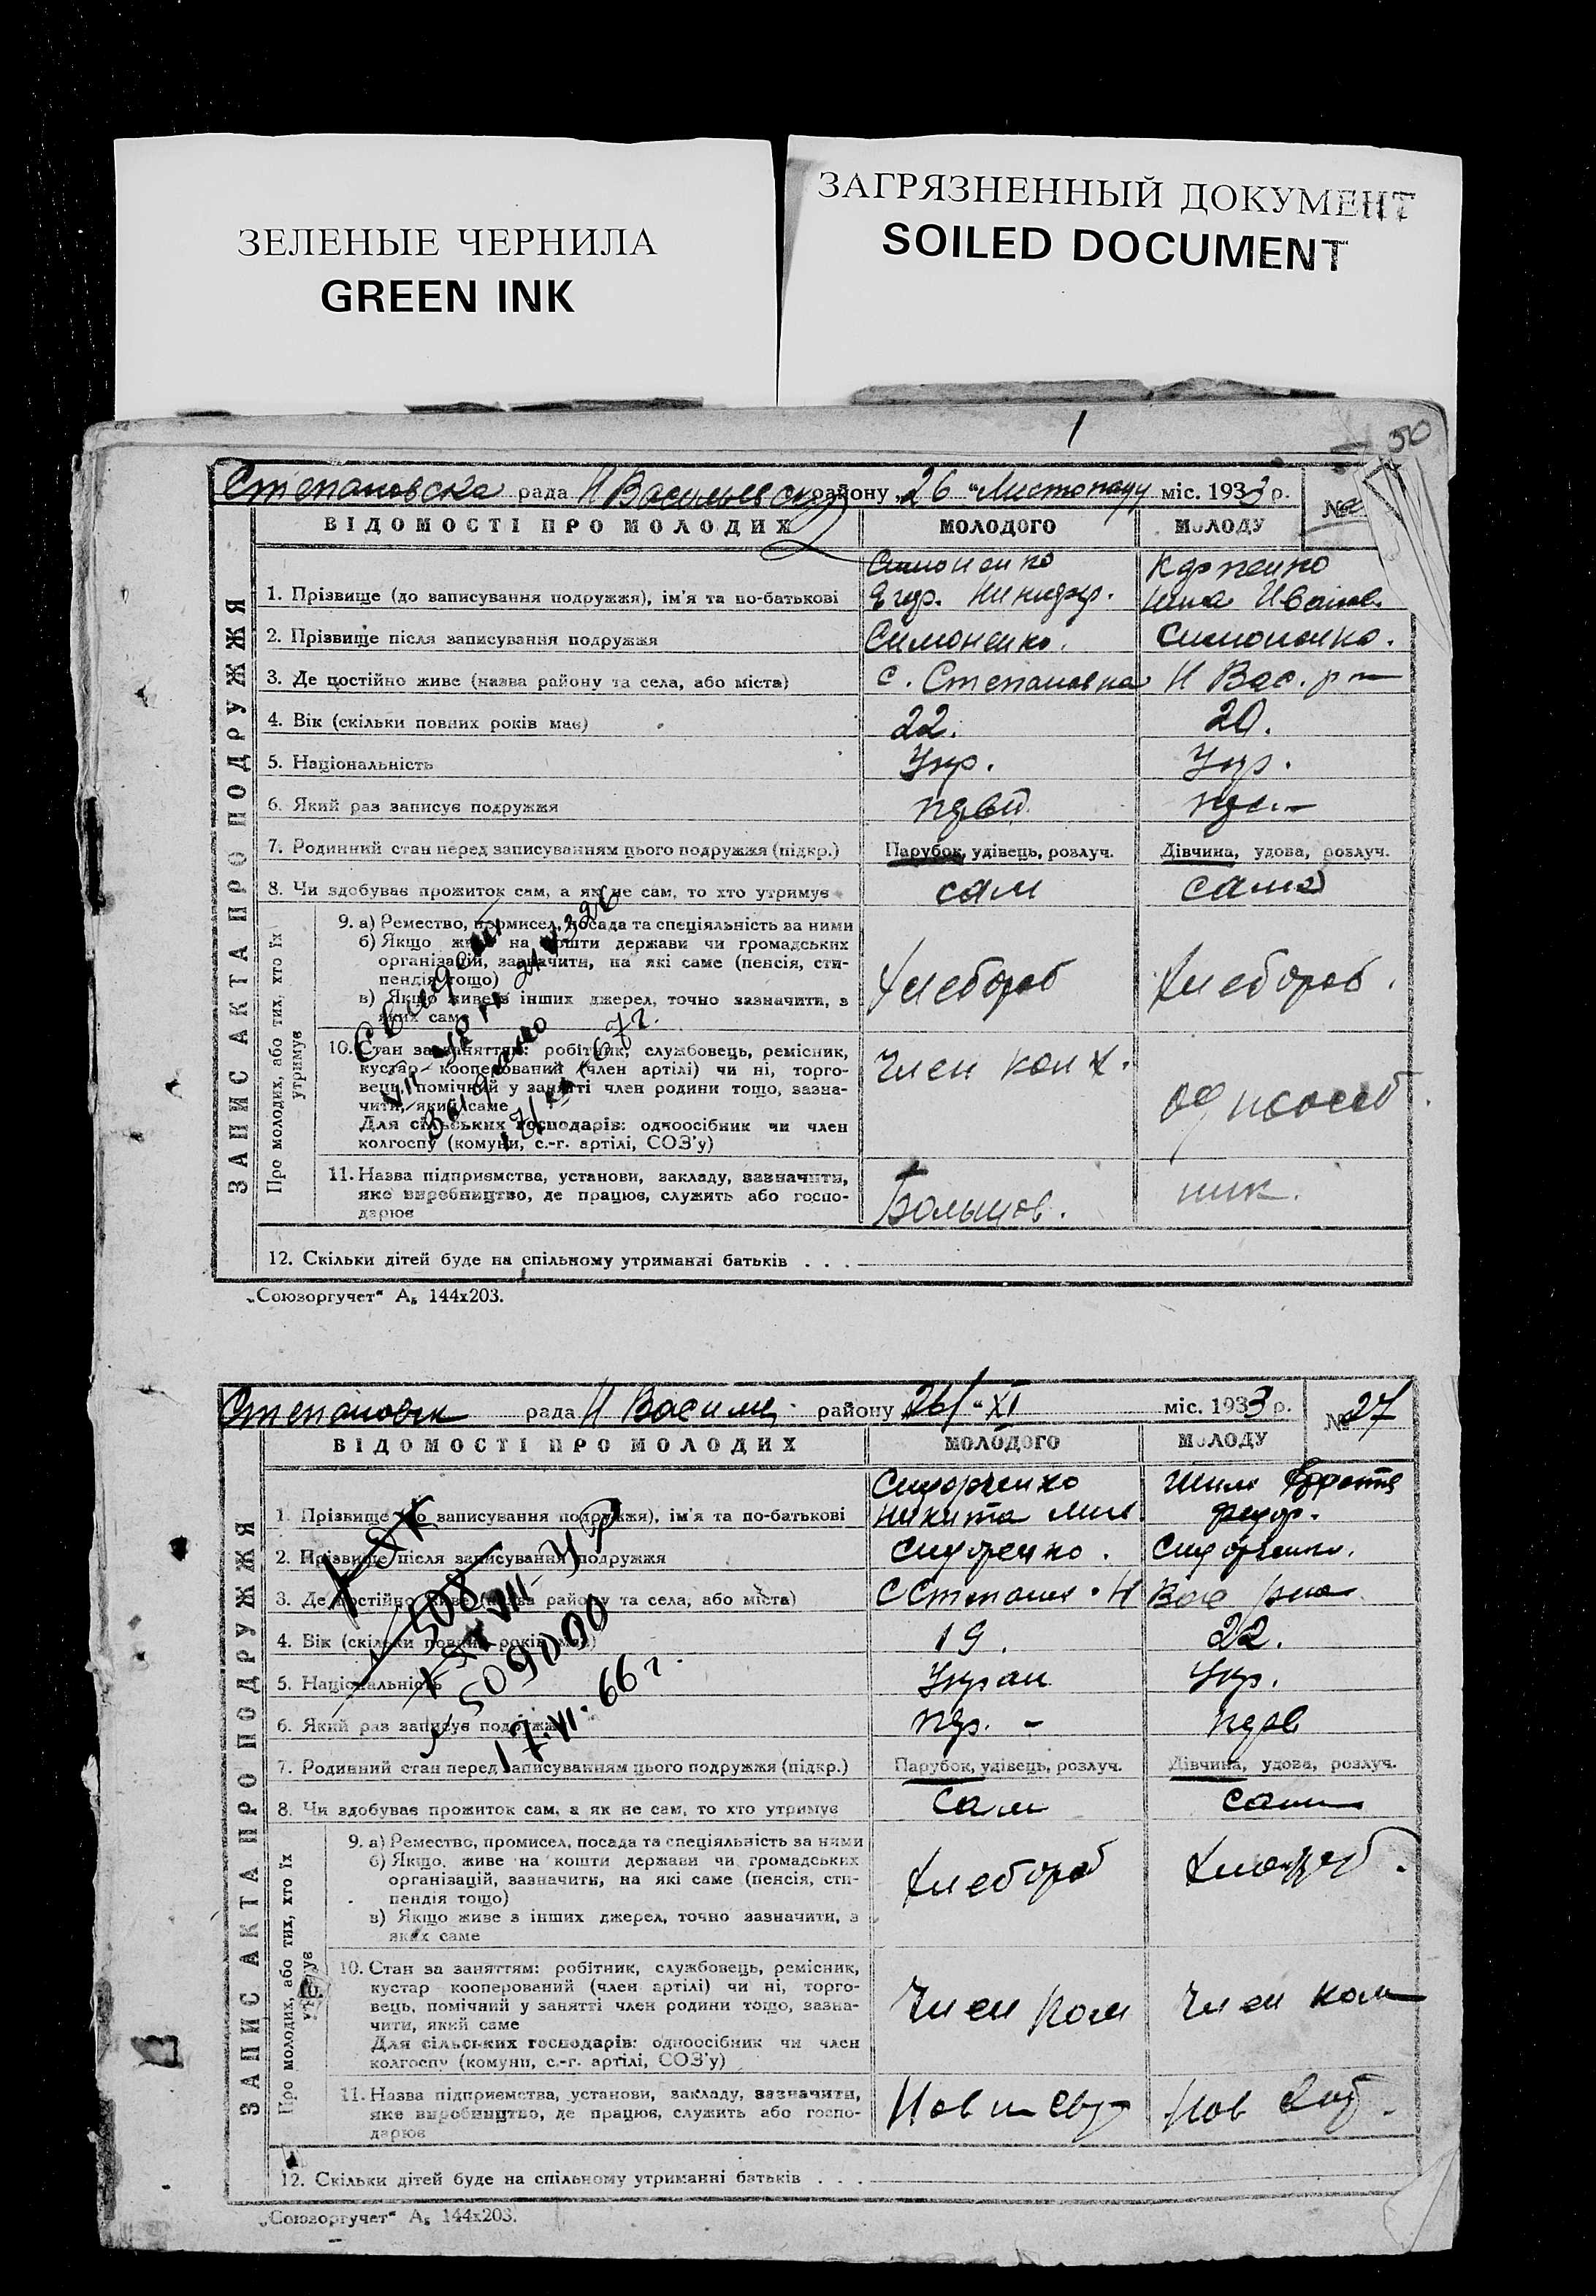 ЗЕЛЕНЫЕ ЧЕРНИЛА
GREEN INK
ЗАГРЯЗНЕННЫЙ ДОКУМЕНТ
SOILED DOCUMENT
1
50
Степановска рада Н Васильевск району „26 “ Листопаду міс. 1933 р. №
ВІДОМОСТІ ПРО МОЛОДИХ МОЛОДОГО МОЛОДУ
ЗАПИС АКТА ПРО ПОДРУЖЖЯ
Симоненко
1. Прізвище (до записування подружжя), ім’я та по-батькові Иванов.
2. Прізвище після записування подружжя Симоненко. Симоненко.
3. Де постійно живе (назва району та села, або міста) с. Степановка Н Вас. р-н
4. Вік (скільки повних років має) 22. 20.
5. Національність Укр. Укр.
6. Який раз записує подружжя первый
7. Родинний стан перед записуванням цього подружжя (підкр.) Парубок, удівець, розлуч. Дівчина, удова, розлуч.
8. Чи здобуває прожиток сам, а як не сам, то хто утримує сам сама
Про молодих, або тих, хто їх утримує
9. а) Ремество, промисел, посада та спеціяльність за ними
б) Якщо живе на кошти держави чи громадських
організацій, зазначити, на які саме (пенсія, сти-
пендія тощо) Хлебороб Хлебороб.
в) Якщо живе з інших джерел, точно зазначити, з
яких саме
10. Стан за заняттям: робітник, службовець, ремісник,
кустар кооперований (член артілі) чи ні, торго- Член кол х.
вець, помічний у занятті член родини тощо, зазна-
чити, який саме одноособ
Для сільських господарів: одноосібник чи член
колгоспу (комуни, с.-г. артілі, СОЗ’у)
11. Назва підприємства, установи, закладу, зазначити,
яке виробництво, де працює, служить або госпо- Большов. ник.
дарює
12. Скільки дітей буде на спільному утриманні батьків . . .
„Союзоргучет“ А₅ 144х203.
Степановск рада Н Васил району 26/-XI міс. 1933 р. № 27
ВІДОМОСТІ ПРО МОЛОДИХ МОЛОДОГО МОЛОДУ
ЗАПИС АКТА ПРО ПОДРУЖЖЯ
Сидорченко
1. Прізвище (до записування подружжя), ім’я та по-батькові Никита Мих. Федор.
2. Прізвище після записування подружжя
3. Де постійно живе (назва району та села, або міста) С Степанов. Н Вас
4. Вік (скільки повних років має) 19. 22.
5. Національність Украи Укр.
6. Який раз записує подружжя пер. - перв
7. Родинний стан перед записуванням цього подружжя (підкр.) Парубок, удівець, розлуч. Дівчина, удова, розлуч.
8. Чи здобуває прожиток сам, а як не сам, то хто утримує сам сама
509000
17.VI.66 г.
Про молодих, або тих, хто їх утримує
9. а) Ремество, промисел, посада та спеціяльність за ними
б) Якщо живе на кошти держави чи громадських
організацій, зазначити, на які саме (пенсія, сти- Хлебороб Хлебороб.
пендія тощо)
в) Якщо живе з інших джерел, точно зазначити, з
яких саме
10. Стан за заняттям: робітник, службовець, ремісник,
кустар кооперований (член артілі) чи ні, торго-
вець, помічний у занятті член родини тощо, зазна- Член кол Член кол
чити, який саме
Для сільських господарів: одноосібник чи член
колгоспу (комуни, с.-г. артілі, СОЗ’у)
11. Назва підприємства, установи, закладу, зазначити,
яке виробництво, де працює, служить або госпо-
дарює
12. Скільки дітей буде на спільному утриманні батьків . . .
„Союзоргучет“ А₅ 144х203.